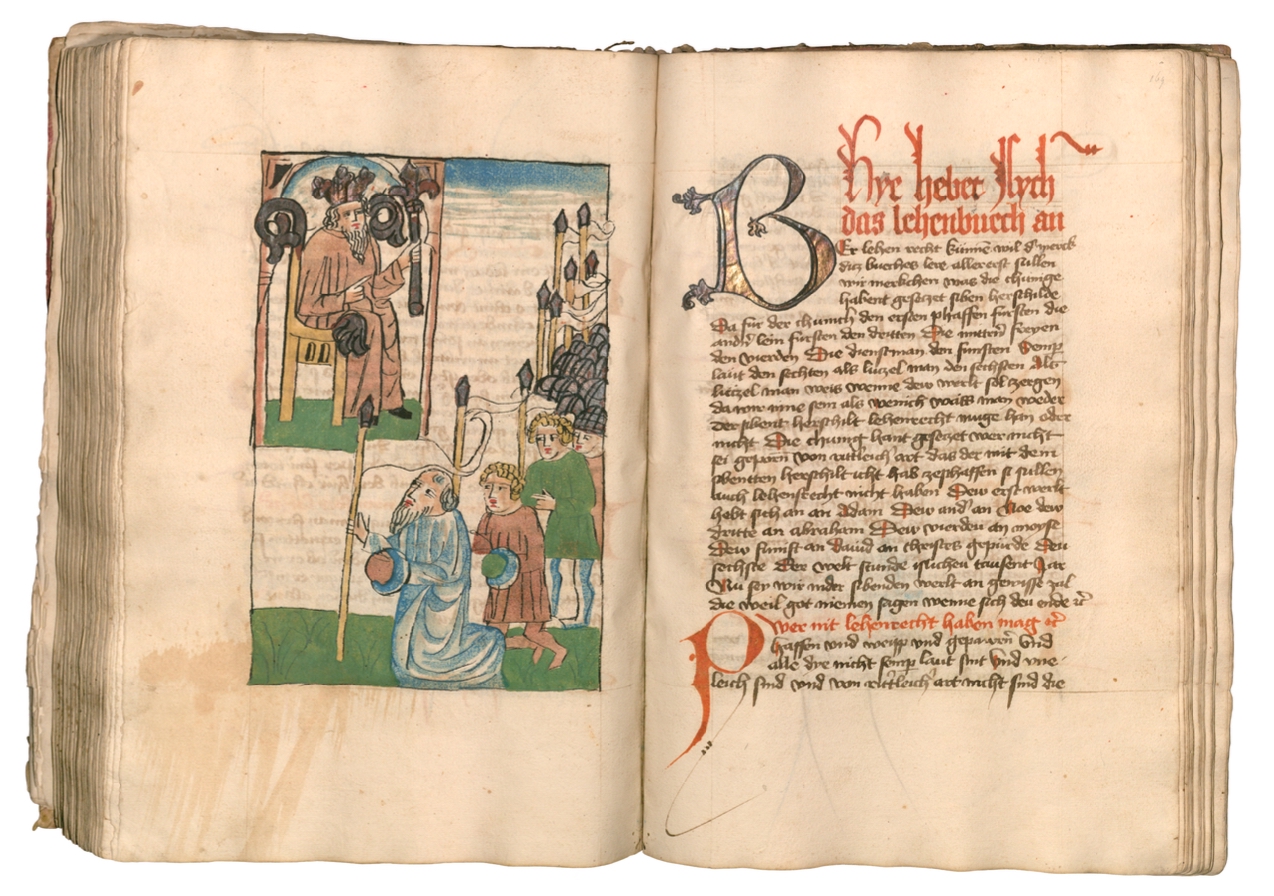 169
Hye hebet Sych
das lehenbuech an
Er lehen recht künnē wil d' merck
ditz buches lere aller erst sullen
wir merkchen was die chunige
habent gesetzet siben herschilde
Da für der chunich den ersten phaffen fürsten die
andñ lein fürsten den dritten Die mittnn freyen
den vierden Die dienstman den funften Semp
laut den sechten als lutzel man den sechsten Als
lutzel man weis wenne dew werlt sol zergen
da war inne sem als wenich waiss man weder
Der sibent herschilt lehenrecht muge han oder
nicht Die chunig hant gesetzet wer nicht
sei geporn von rittleich art das der mit dem
sbentten herschilt icht hab zeschaffen si sullen
auch lehensrecht nicht haben Dew erst werlt
hebt sich an an Adam Dew and' an Noe dew
dritte an abraham Dew vierden an moyse
Dew funfft an Dauid an christes gepurde Deu
sechste Der welt stunde isluchen tausent Jar
Nu sey wir in der sibenden werlt an gewisse zal
die weil got niemen sagen wenne sich deu ende ꝛc̄
Wer nit lehenrecht haben mag ꝛc̄
haffen und weip und gepawrn̄ Und
alle dre nicht semp laut sint Und vne
leich sind und von rittleich art nicht sind die